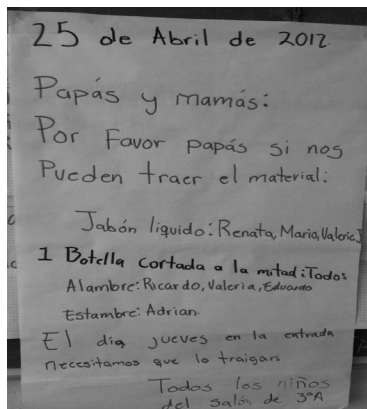 25 de Abril de 2012.
Papás y mamás:
Por Favor papás si nos
Pueden traer el material:
Jabón liquido: Renata, Mario, Valeria
1 Botella cortada a la mitad: Todos
Alambre: Ricardo, Valeria, Eduardo
Estambre: Adrian.
El dia jueves en la entrada
necesitamos que lo traigan
Todos los niños
del salón de 3ºA